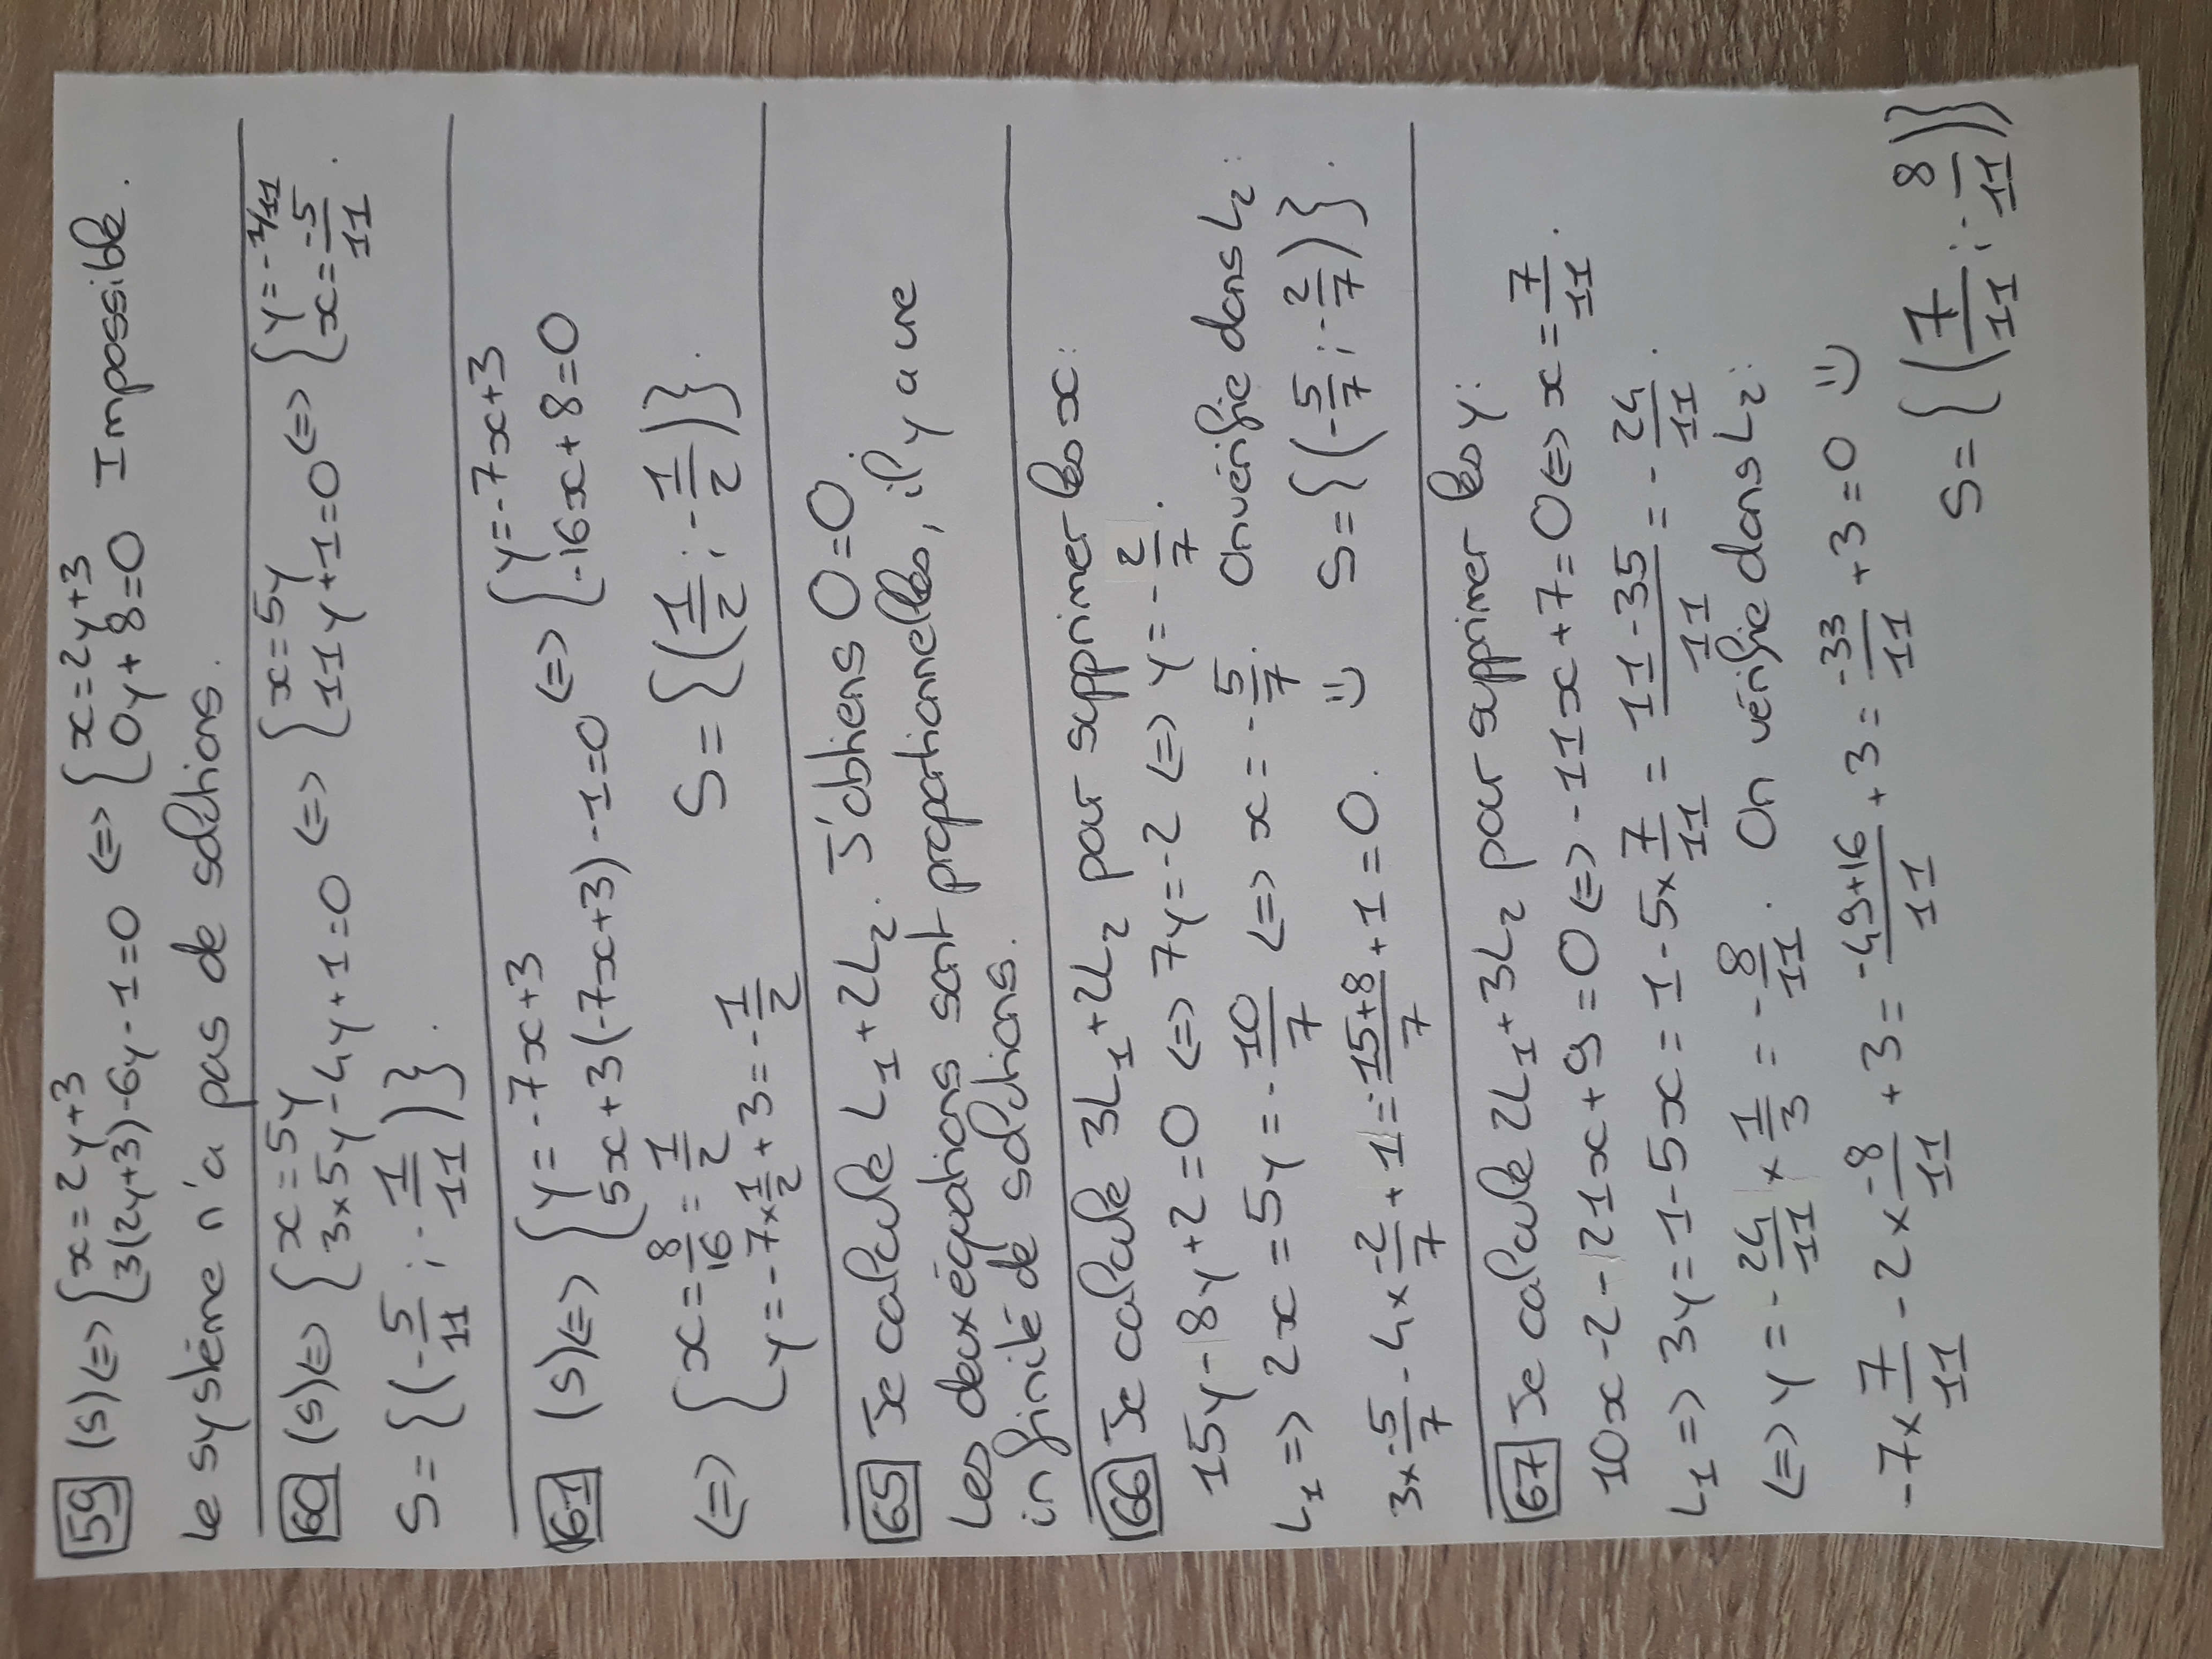 59 (S) <=> { x = 2y+3 <=> { x = 2y+3 Impossible.
3(2y+3) - 6y - 1 = 0 0y + 8 = 0
Le système n'a pas de solutions.
60 (S) <=> { x = 5y <=> { x = 5y <=> { y = -1/11
3×5y - 4y + 1 = 0 11y + 1 = 0 x = -5/11 .
S = {(-5/11 ; -1/11)}.
61 (S) <=> { y = -7x+3 <=> { y = -7x+3
5x + 3(-7x+3) - 1 = 0 -16x + 8 = 0
<=> { x = 8/16 = 1/2 S = {(1/2 ; -1/2)}.
y = -7×1/2 + 3 = -1/2
65 Je calcule L₁ + 2L₂. J'obtiens 0=0.
Les deux équations sont proportionnelles, il y a une
infinité de solutions.
66 Je calcule 3L₁ + 2L₂ pour supprimer les x :
15y - 8y + 2 = 0 <=> 7y = -2 <=> y = -2/7.
L₁ => 2x = 5y = -10/7 <=> x = -5/7. On vérifie dans L₂ :
3×-5/7 - 4×-2/7 + 1 = -15+8/7 + 1 = 0. S = {(-5/7 ; -2/7)}.
67 Je calcule 2L₁ + 3L₂ pour supprimer les y :
10x - 2 - 21x + 9 = 0 <=> -11x + 7 = 0 <=> x = 7/11.
L₁ => 3y = 1 - 5x = 1 - 5×7/11 = 11-35/11 = -24/11.
<=> y = -24/11 × 1/3 = -8/11. On vérifie dans L₂ :
-7×7/11 - 2×-8/11 + 3 = -49+16/11 + 3 = -33/11 + 3 = 0
S = {(7/11 ; -8/11)}